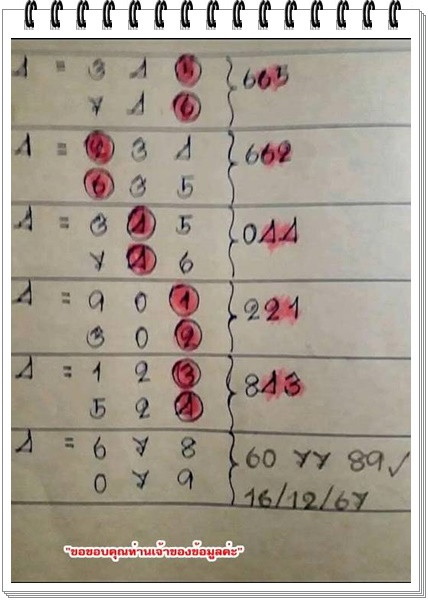 4 = 3 4 5
7 4 6
665
4 = 2 3 4
6 3 5
662
4 = 3 4 5
7 4 6
044
4 = 9 0 1
3 0 2
221
4 = 1 2 3
5 2 4
843
4 = 6 7 8
0 7 9
60 77 89 ✓
16/12/67
"ขอขอบคุณท่านเจ้าของข้อมูลค่ะ"